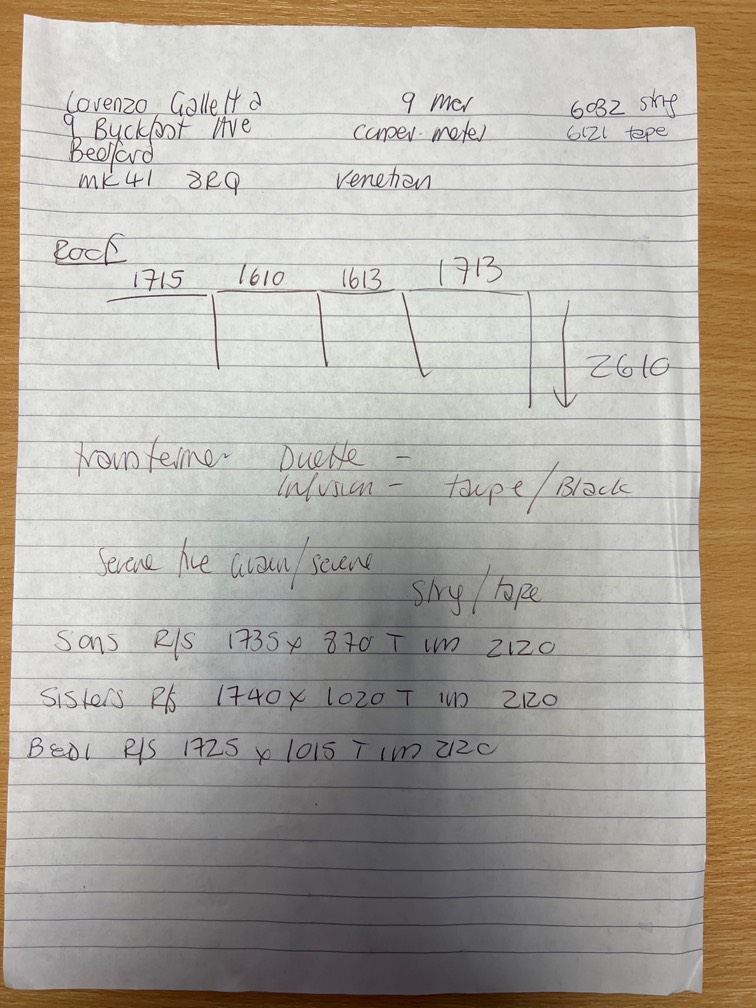 Lorenzo Galletta
9 Byckfast Ave
Bedford
MK41 8RQ
9 mer
venetian
6032 strg
6121 tape
Roof
1715 1610 1613 1713
2610
Duette -
Infusion - taupe/Black
Serene fire Grain/serene
Strg/tape
Sons R/S 1735 x 870 T 2120
Sisters R/S 1740 x 1020 T 2120
BED1 R/S 1725 x 1015 T 2120